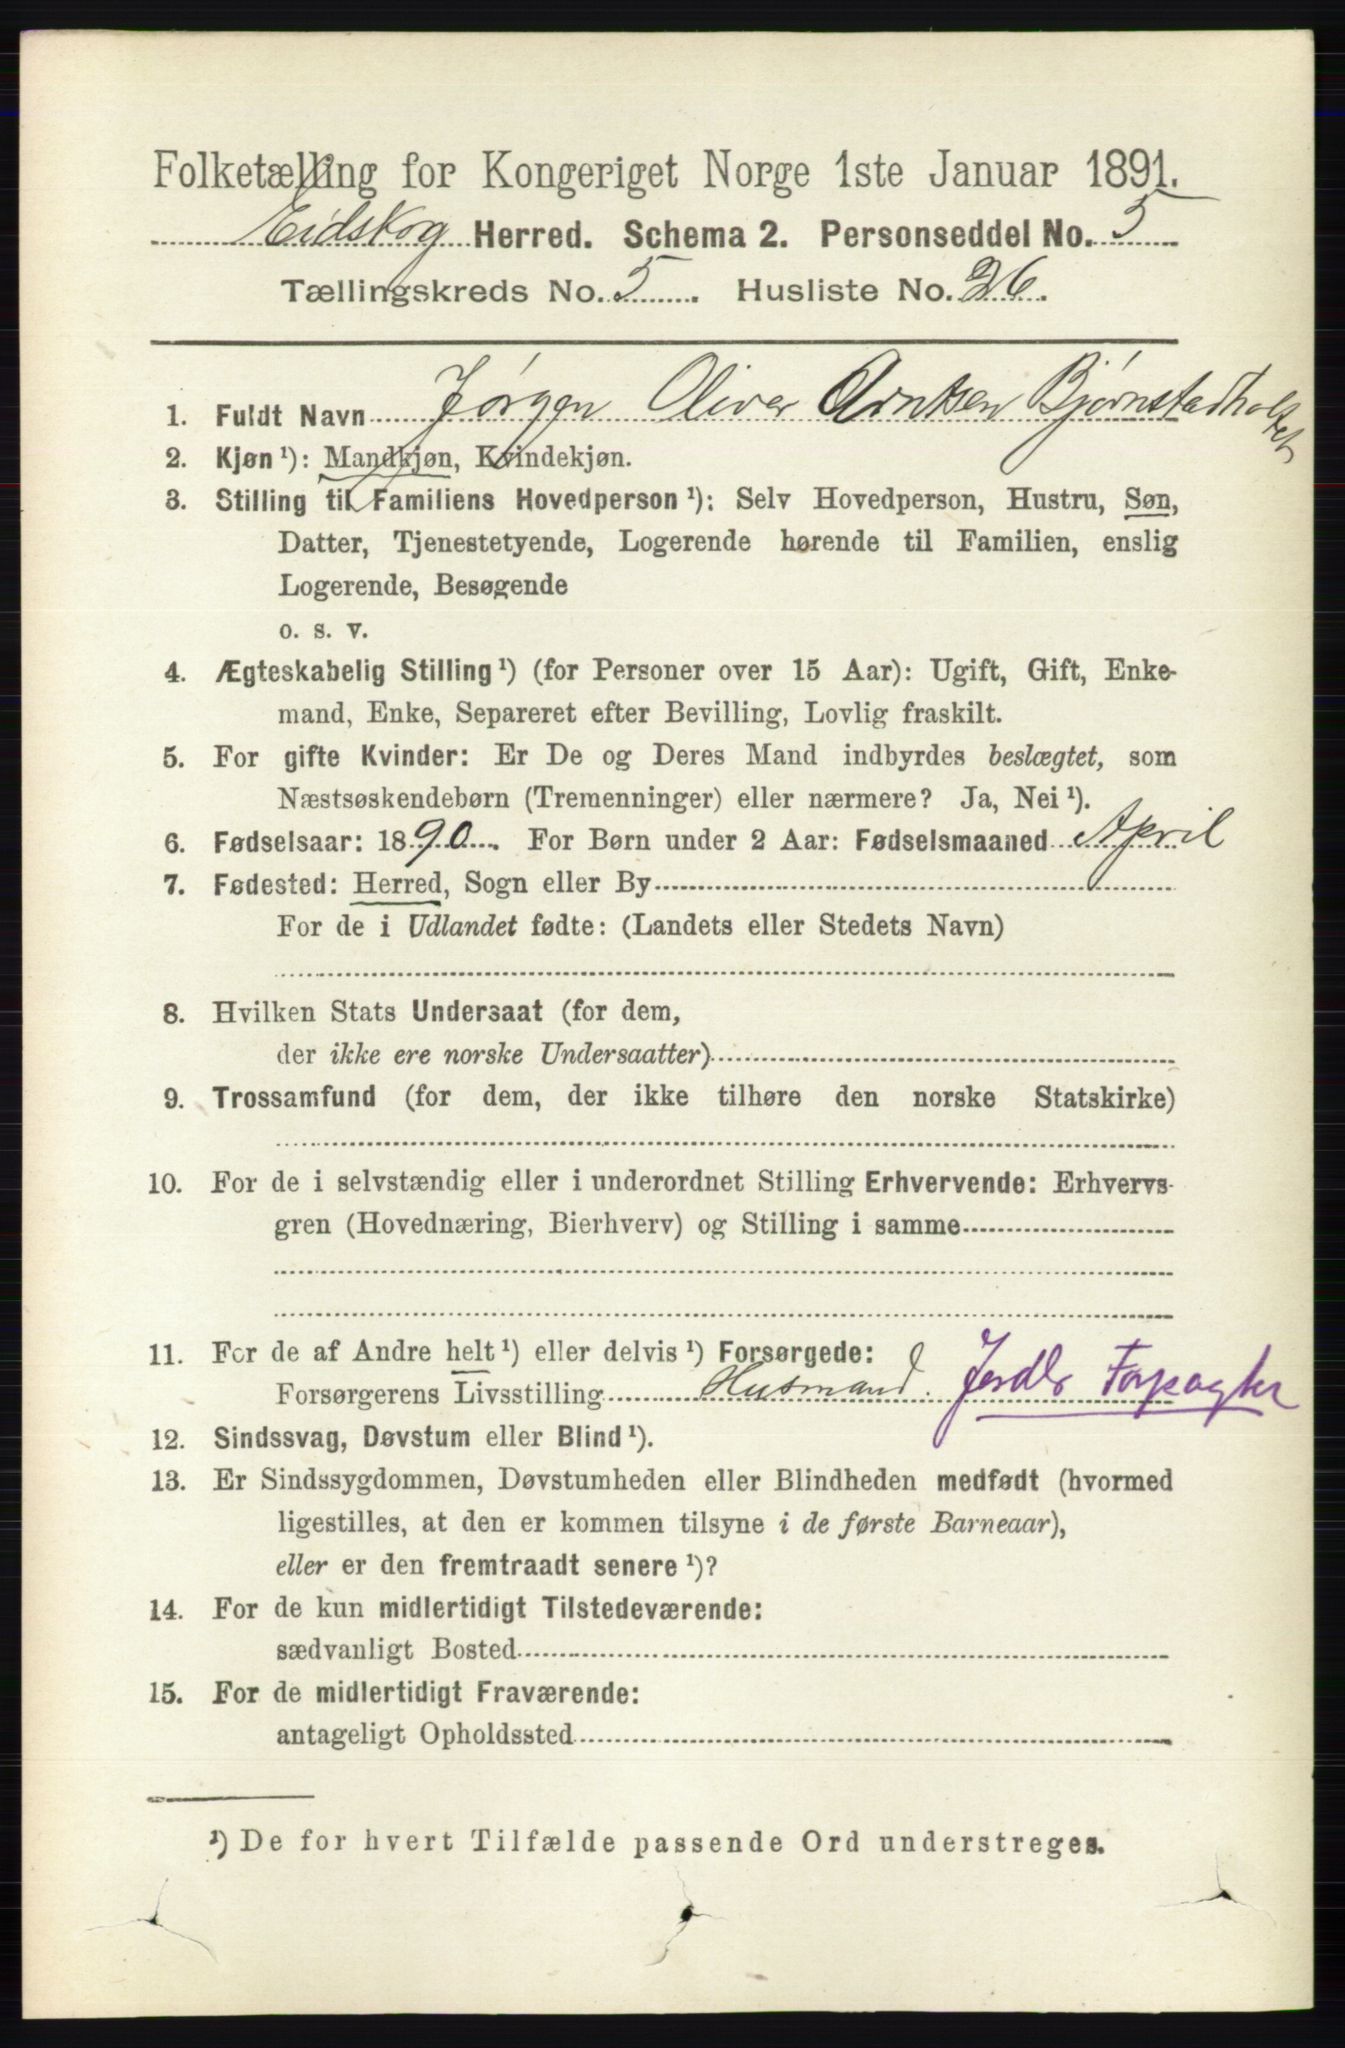 Folketælling for Kongeriget Norge 1ste Januar 1891.
Eidskog Herred. Schema 2. Personseddel No. 5
Tællingskreds No. 5. Husliste No. 26.
1. Fuldt Navn Jørgen Oliver Arntsen Bjørnstadholtet
2. Kjøn ¹): Mandkjøn, Kvindekjøn.
3. Stilling til Familiens Hovedperson ¹): Selv Hovedperson, Hustru, Søn,
Datter, Tjenestetyende, Logerende hørende til Familien, enslig
Logerende, Besøgende
o. s. v.
4. Ægteskabelig Stilling ¹) (for Personer over 15 Aar): Ugift, Gift, Enke-
mand, Enke, Separeret efter Bevilling, Lovlig fraskilt.
5. For gifte Kvinder: Er De og Deres Mand indbyrdes beslægtet, som
Næstsøskendebørn (Tremenninger) eller nærmere? Ja, Nei ¹).
6. Fødselsaar: 1890. For Børn under 2 Aar: Fødselsmaaned April
7. Fødested: Herred, Sogn eller By
For de i Udlandet fødte: (Landets eller Stedets Navn)
8. Hvilken Stats Undersaat (for dem,
der ikke ere norske Undersaatter)
9. Trossamfund (for dem, der ikke tilhøre den norske Statskirke)
10. For de i selvstændig eller i underordnet Stilling Erhvervende: Erhvervs-
gren (Hovednæring, Bierhverv) og Stilling i samme
11. For de af Andre helt ¹) eller delvis ¹) Forsørgede:
Forsørgerens Livsstilling Husmand. Jordbr Forpagter
12. Sindssvag, Døvstum eller Blind ¹).
13. Er Sindssygdommen, Døvstumheden eller Blindheden medfødt (hvormed
ligestilles, at den er kommen tilsyne i de første Barneaar),
eller er den fremtraadt senere ¹)?
14. For de kun midlertidigt Tilstedeværende:
sædvanligt Bosted
15. For de midlertidigt Fraværende:
antageligt Opholdssted
¹) De for hvert Tilfælde passende Ord understreges.